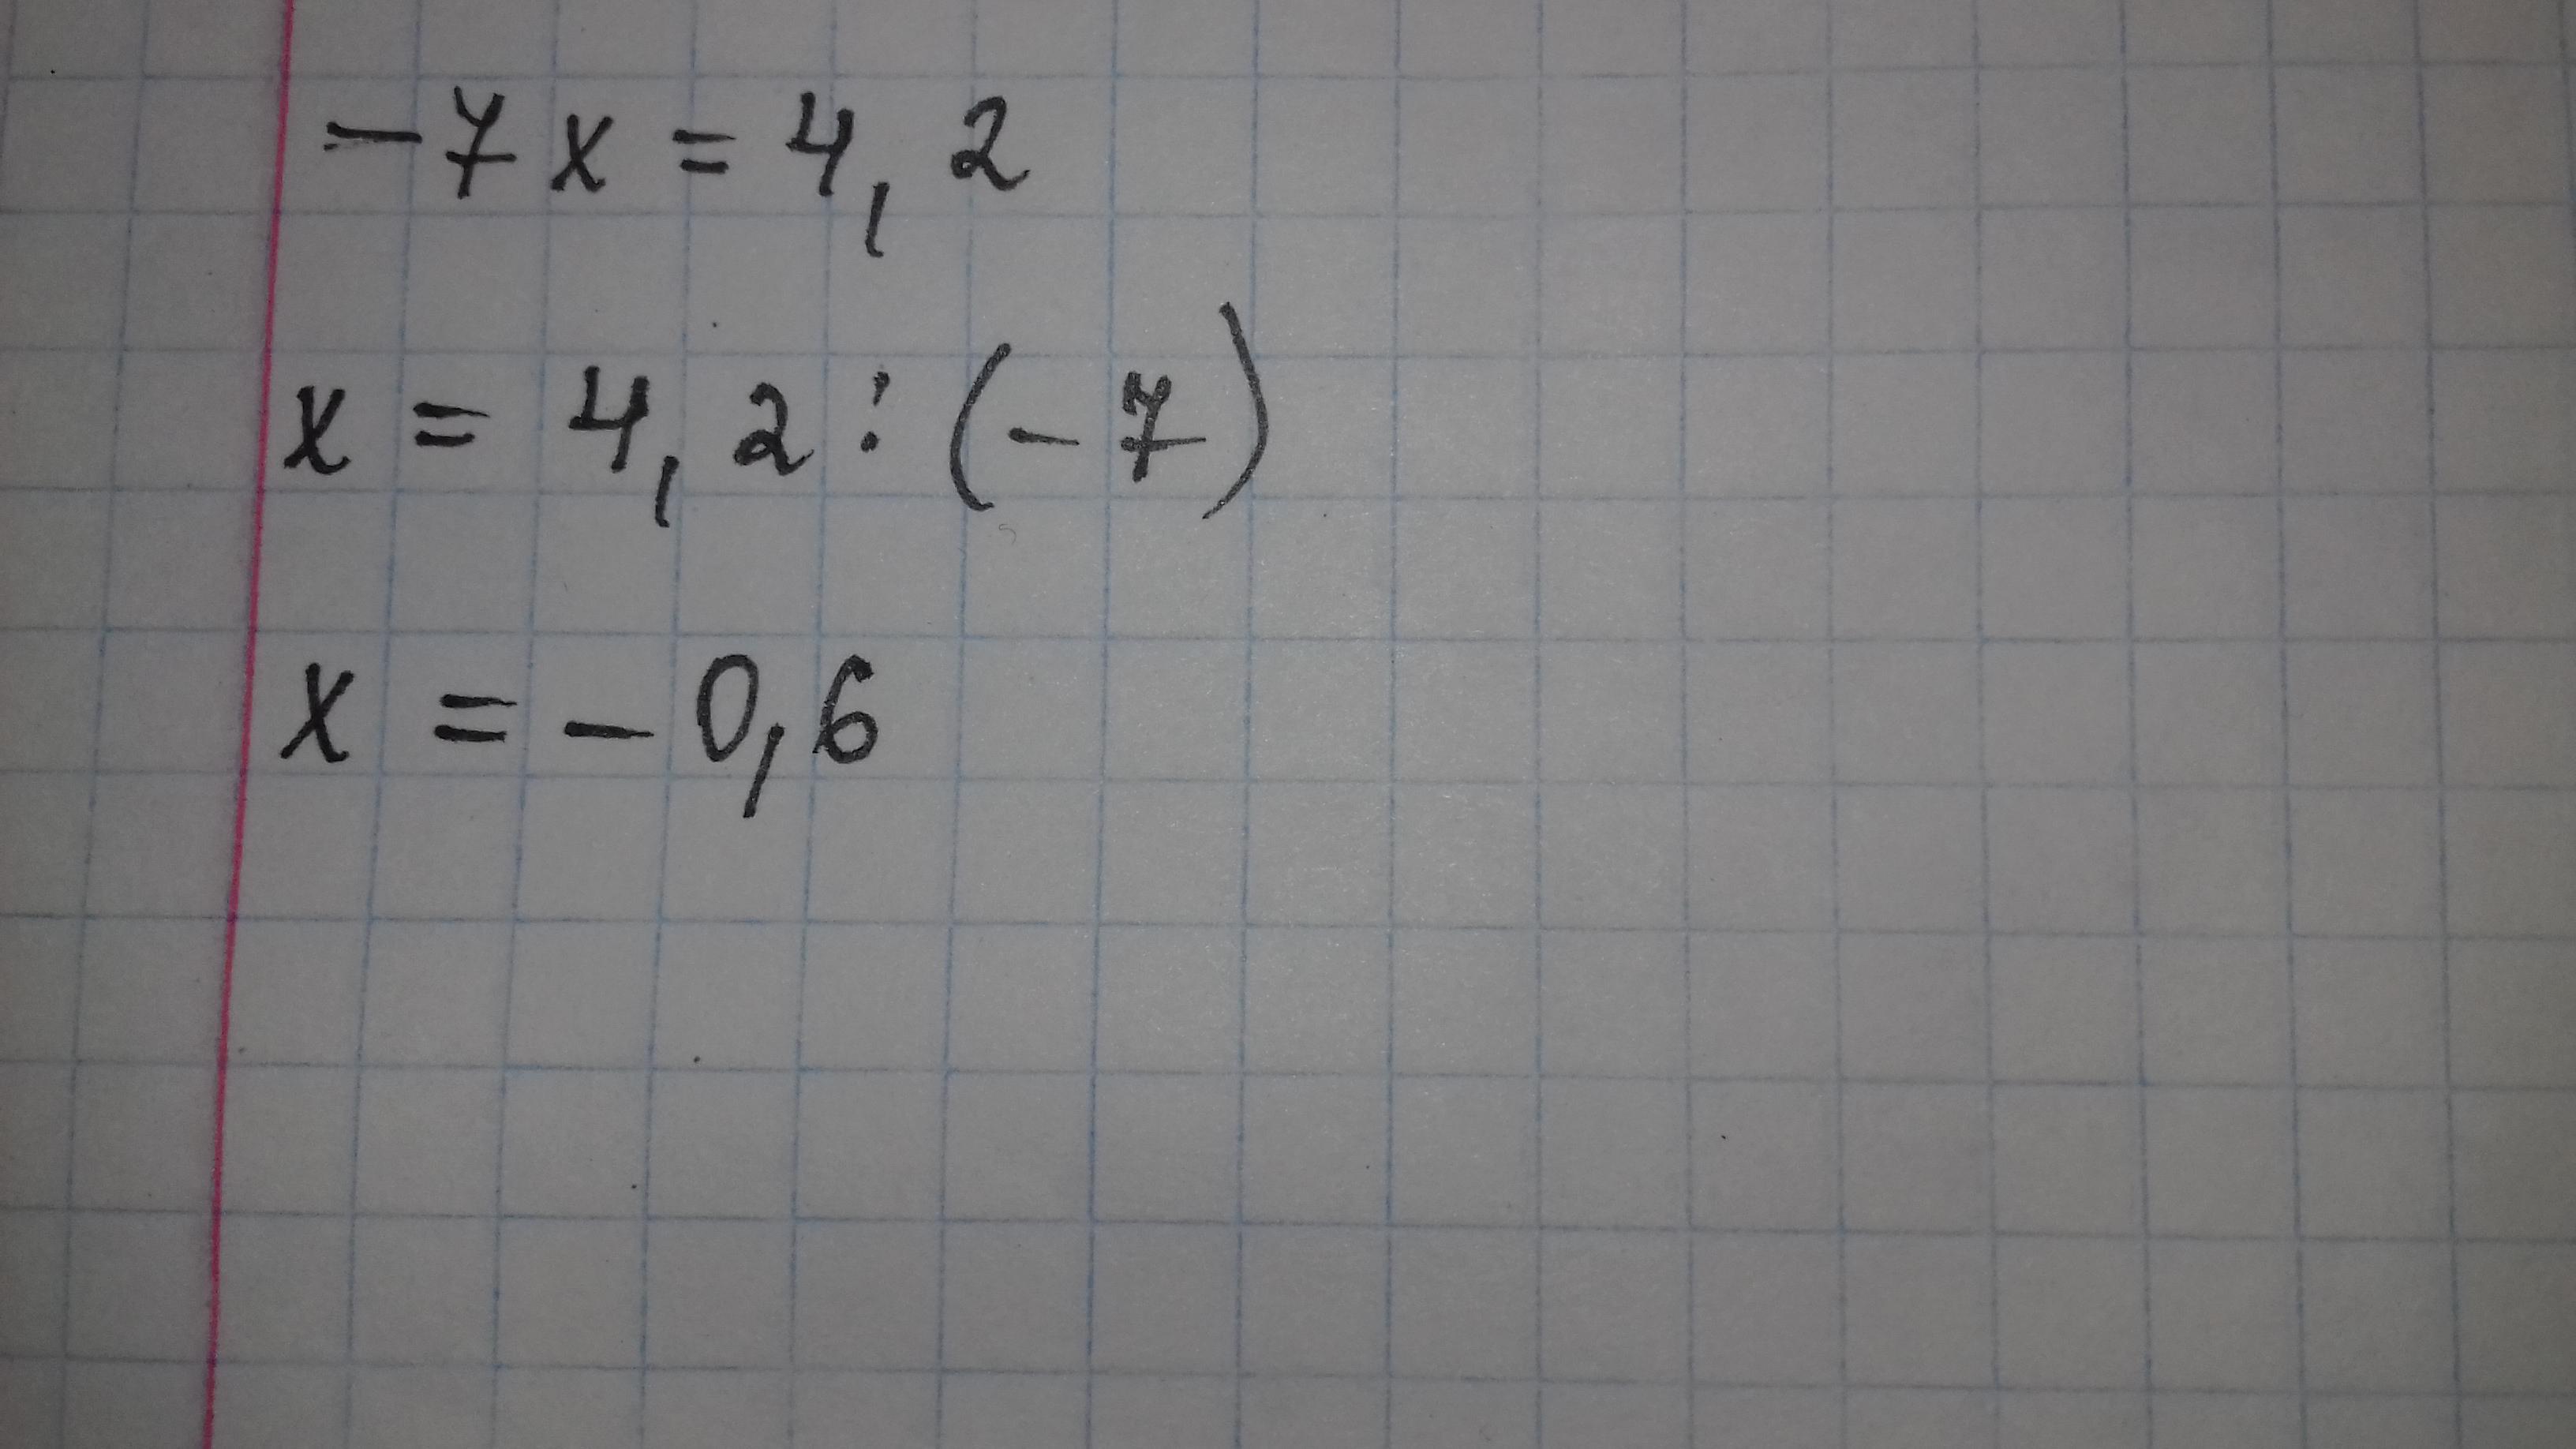 -7x = 4,2
x = 4,2 : (-7)
x = -0,6